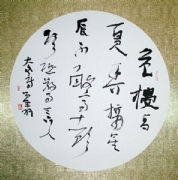 危樓高
百尺手可摘星
辰不敢高聲語
恐驚天上人
太白詩